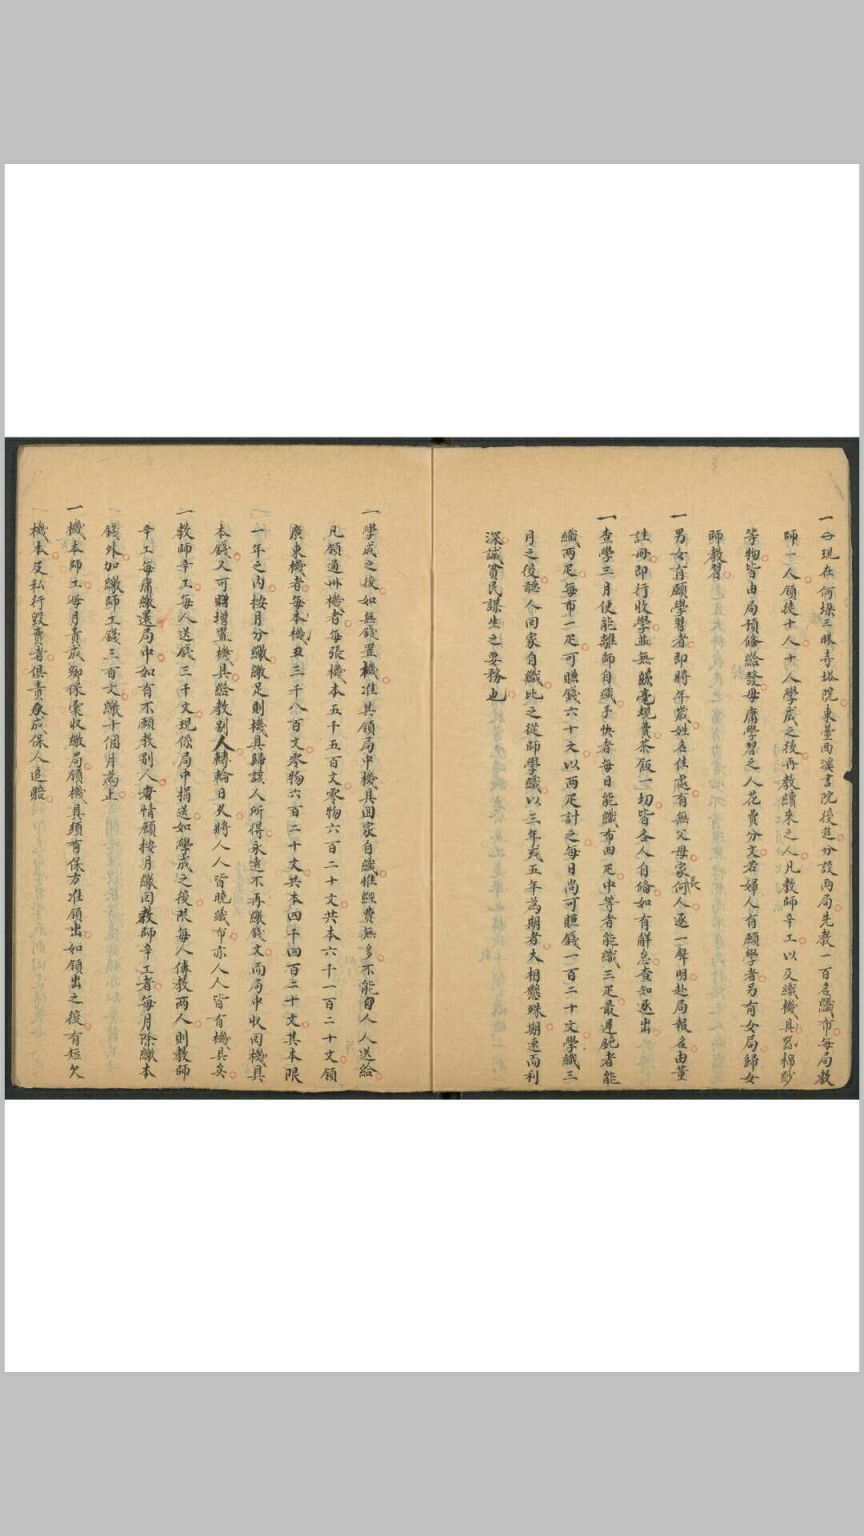 一現在何垛三昧寺塔院東臺西溪書院後進分設兩局先教一百名織布每局教
師一人領徒十人十人學成之後再教續來之人凡教師辛工以及織機具器棉紗
等物皆由局預備給發毋庸學習之人花費分文若婦人有願學者另有女局歸女
師教習
一男女有願學習者即將年歲姓名住處有無父母家長何人逐一聲明赴局報名由董
註冊即行收學並無絲毫規費茶飯一切皆各人自備如有懈怠查知逐出
一查學三月便能離師自織手快者每日能織布四疋中等者能織三疋最遲鈍者能
織兩疋每布一疋可賺錢六十文以兩疋計之每日尚可賺錢一百二十文學織三
月之後聽人回家自織比之從師學藝以三年或五年為期者大相懸殊期速而利
深誠貧民謀生之要務也
一學成之後如無錢置機准其領局中機具回家自織惟經費無多不能自人人送給
凡領通州機者每張機本五千五百文零物六百二十文共本六千一百二十文領
廣東機者每本機丑三千八百文零物六百二十文共本四千四百二十文其本限
一年之內按月分繳繳足則機具歸該人所得永遠不再繳錢文而局中收回機具
本錢又可增置機具給教別人轉輪日久將人人皆曉織布亦人人皆有機具矣
一教師辛工每人送錢三千文現係局中捐送如學成之後限每人傳教兩人則教師
辛工每庸繳還局中如有不願教別人者情願按月繳回教師辛工者每月除繳本
錢外加繳師工錢三百文繳十個月為止
一機本師工每月責成鄉保彙收繳局領機具須有保方准領出如領出之後有短欠
機本及私行毀賣者俱責成保人追賠